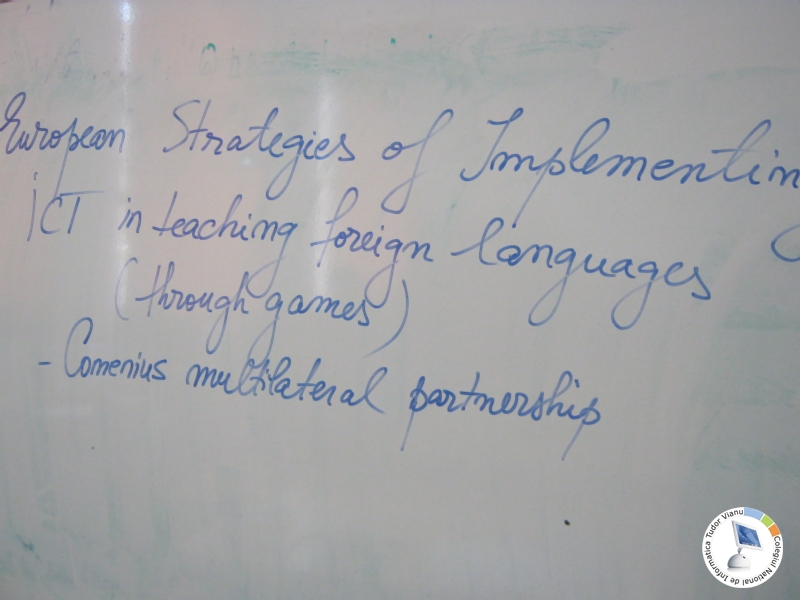 European Strategies of Implementing
ICT in teaching foreign languages
(through games)
- Comenius multilateral partnership
Colegiul National de Informatica Tudor Vianu